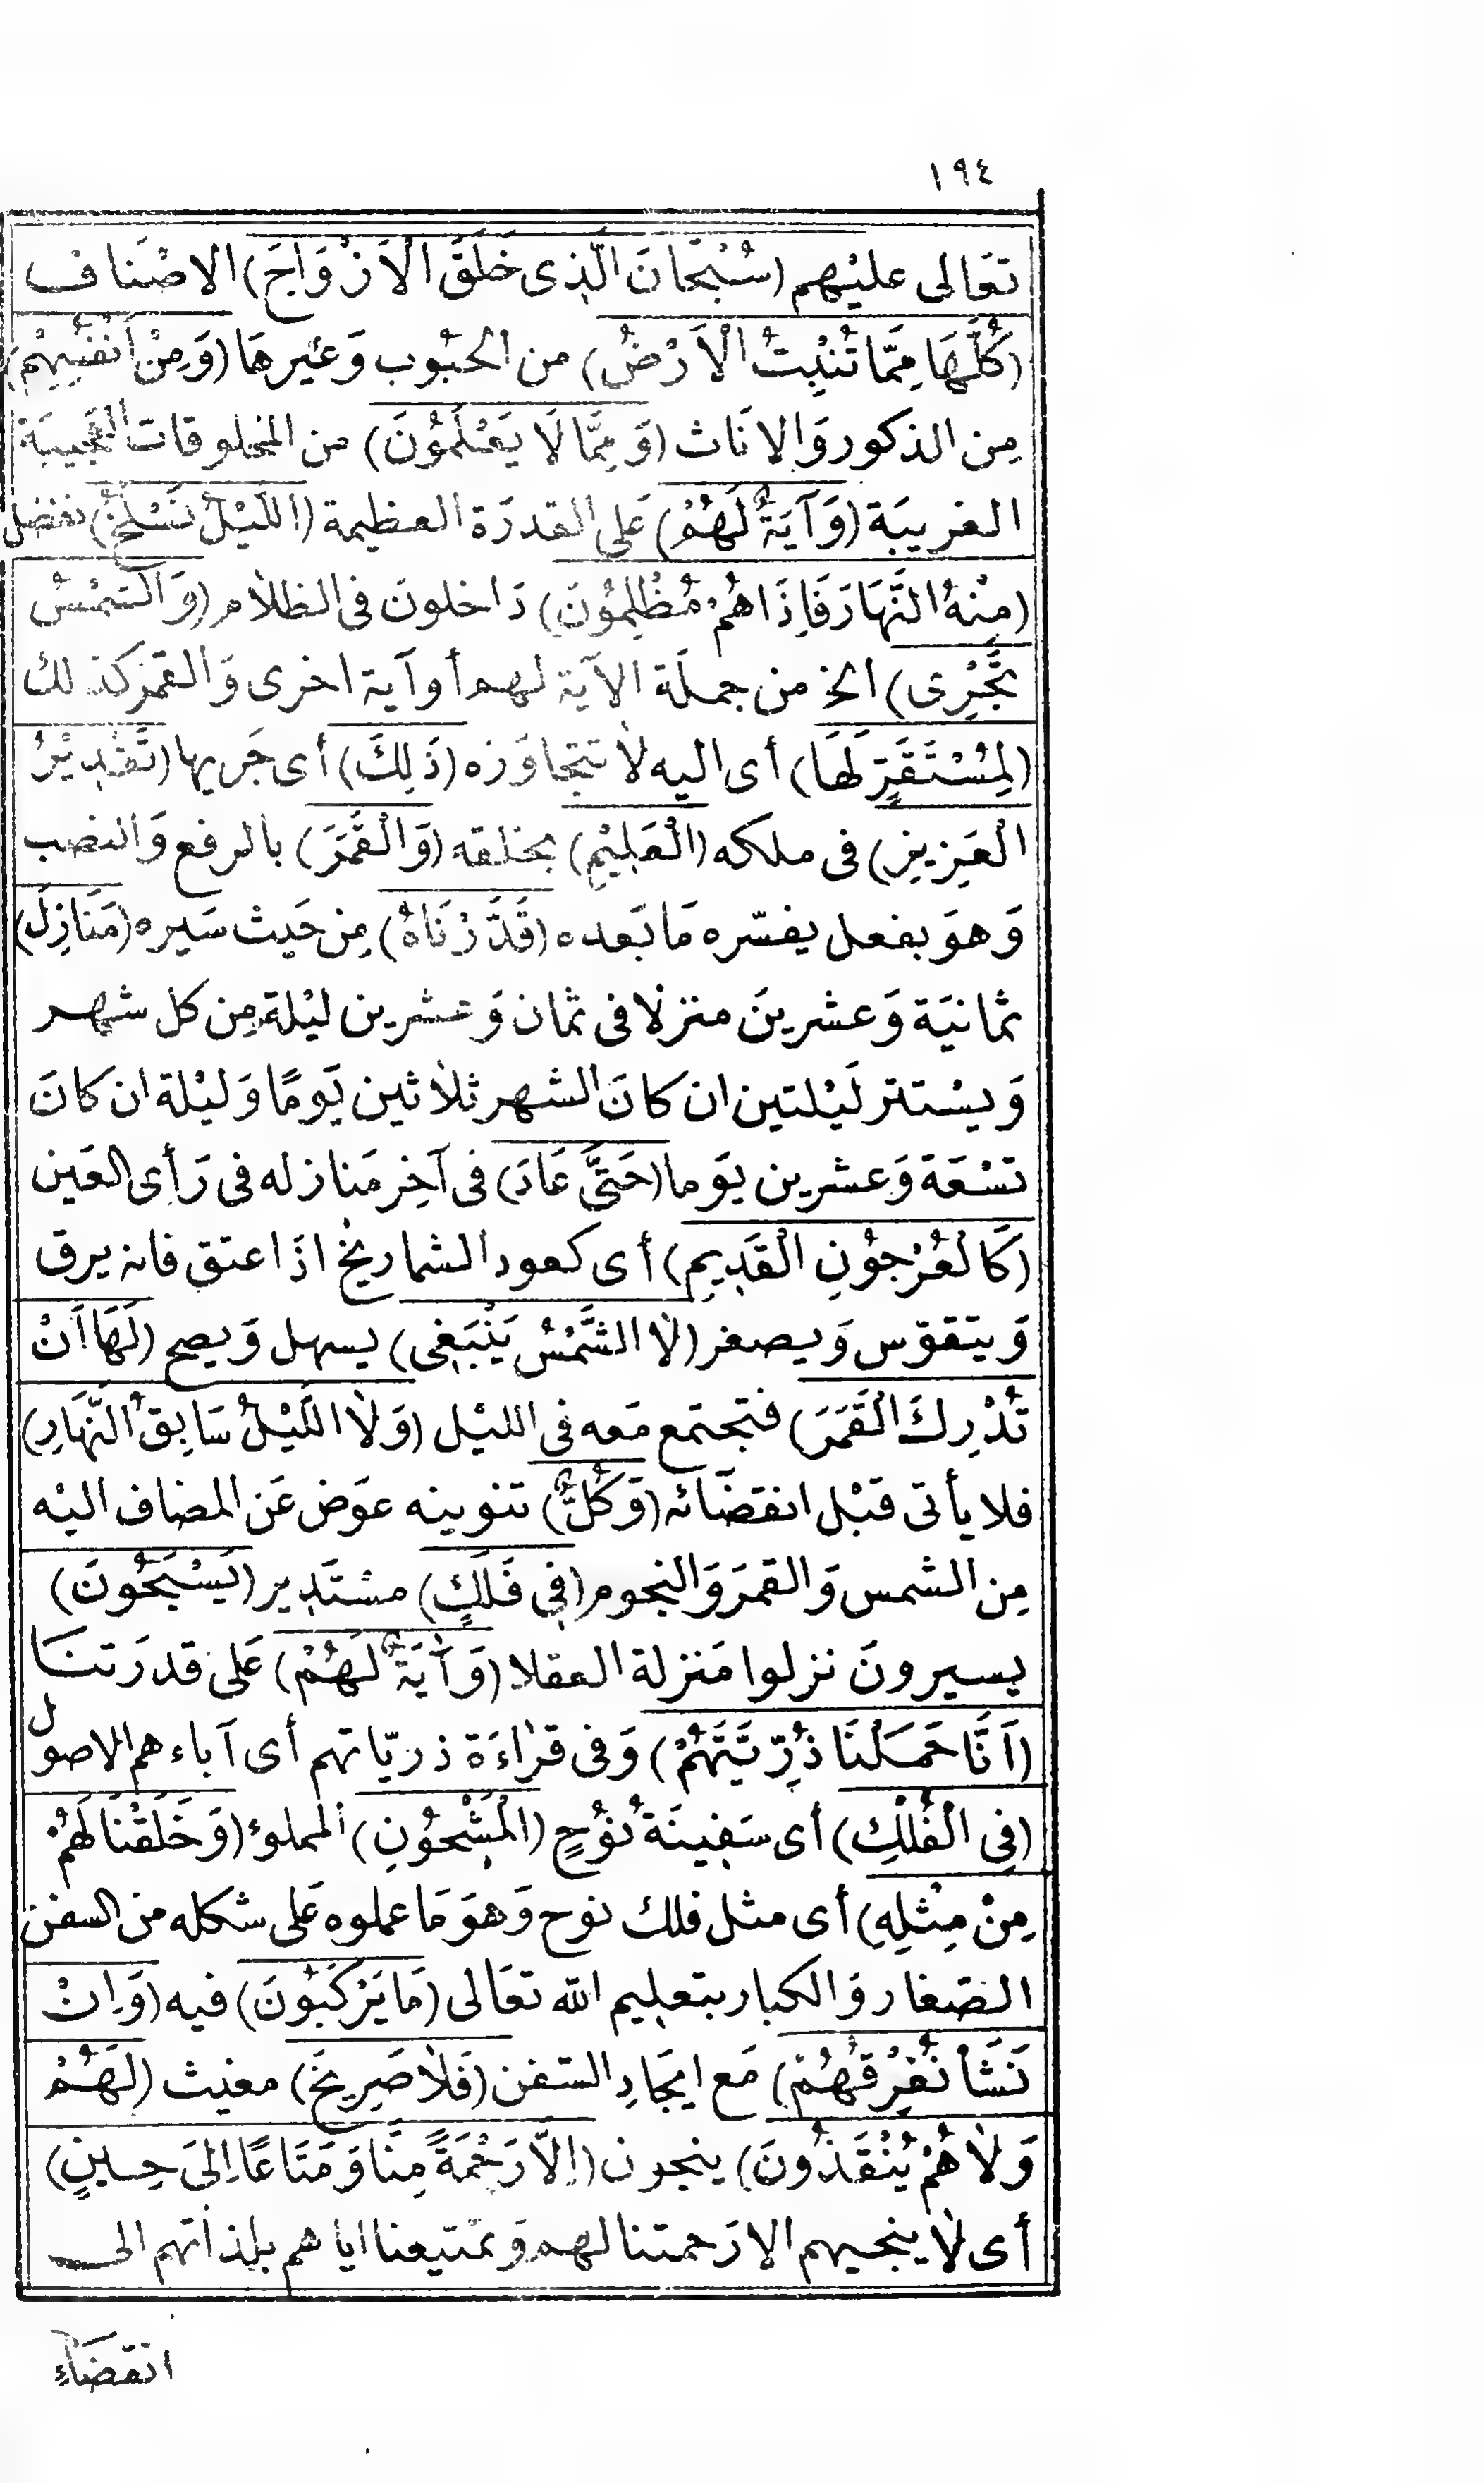 ١٩٤
تعَالى عليْهم (سُبْحَانَ الَّذِى خَلَقَ الْاَزْوَاجَ) الاصْنَاف
(كُلَّهَا مِمَّا تُنْبِتُ الْاَرْضُ) من الحبُوب وَغيرهَا (وَمِنْ اَنْفُسِهِمْ)
مِن الذكور وَالاناث (وَمِمَّا لَا يَعْلَمُونَ) من المخلوقات العجيبَة
الغريبَة (وَآيَةٌ لَهُمْ) عَلى القدرَة العظيمة (اللَّيْلُ نَسْلَخُ) نفضل
(مِنْهُ النَّهَارَ فَاِذَا هُمْ مُظْلِمُونَ) دَاخلونَ فى الظلام (وَالشَّمْسُ
تَجْرِى) الخ من جملَة الآية لهم أو آية اخرى وَالقمَر كذلك
(لِمُسْتَقَرٍّ لَهَا) أى اليه لا تتجاوَزه (ذَلِكَ) أى جَريها (تَقْدِيْرُ
الْعَزِيزِ) فى ملكه (الْعَلِيْمِ) بخلقه (وَالْقَمَرَ) بالرفع وَالنصب
وَهوَ بفعل يفسّره مَا بَعده (قَدَّرْنَاهُ) مِن حَيث سَيره (مَنَازِلَ)
ثمانيَة وَعشرينَ منزلا فى ثمان وَعشرين ليْلة مِن كل شهر
وَيسْتتر لَيْلتين ان كانَ الشهر ثلاثين يَومًا وَليْلة ان كانَ
تسْعَة وَعشرين يوَما (حَتَّى عَادَ) فى آخِر مَنازله فى رَأى العَين
(كَالْعُرْجُوْنِ الْقَدِيمِ) أى كعود الشماريخ اذَا عتق فانه يرق
وَيتقوّس وَيصغر (لَا الشَّمْسُ يَنْبَغِى) يسهل وَيصح (لَهَا اَنْ
تُدْرِكَ الْقَمَرَ) فتجتمع مَعه فى الليْل (وَلَا اللَّيْلُ سَابِقُ النَّهَارِ)
فلا يأتى قبْل انقضَائه (وَكُلٌّ) تنوينه عوَض عَن المضاف اليْه
مِن الشمس وَالقمَر وَالنجوم (فِى فَلَكٍ) مستَدير (يَسْبَحُونَ)
يسيرونَ نزلوا مَنزلة العقلا (وَآيَةٌ لَهُمْ) عَلى قدرَتنَا
(اَنَّا حَمَلْنَا ذُرِّيَّتَهُمْ) وَفى قراءَة ذريّاتهم أى آباءهم الاصول
(فِى الْفُلْكِ) أى سَفِينَةُ نُوْحٍ (الْمَشْحُوْنِ) المملوء (وَخَلَقْنَا لَهُمْ
مِنْ مِثْلِهِ) أى مثل فلك نوح وَهوَ مَا عملوه عَلى شكله من السفن
الصّغار وَالكبار بتعليم الله تعَالى (مَا يَرْكَبُونَ) فيه (وَاِنْ
نَشَأْ نُغْرِقْهُمْ) مَع ايجَادِ السّفن (فَلَا صَرِيخَ) مغيث (لَهُمْ
وَلَا هُمْ يُنْقَذُونَ) ينجون (اِلَّا رَحْمَةً مِنَّا وَمَتَاعًا اِلىَ حِينٍ)
أى لا ينجيهم الا رَحمتنا لهم وَتمتيعنا اياهم بلذاتهم الى
انقضَاءِ